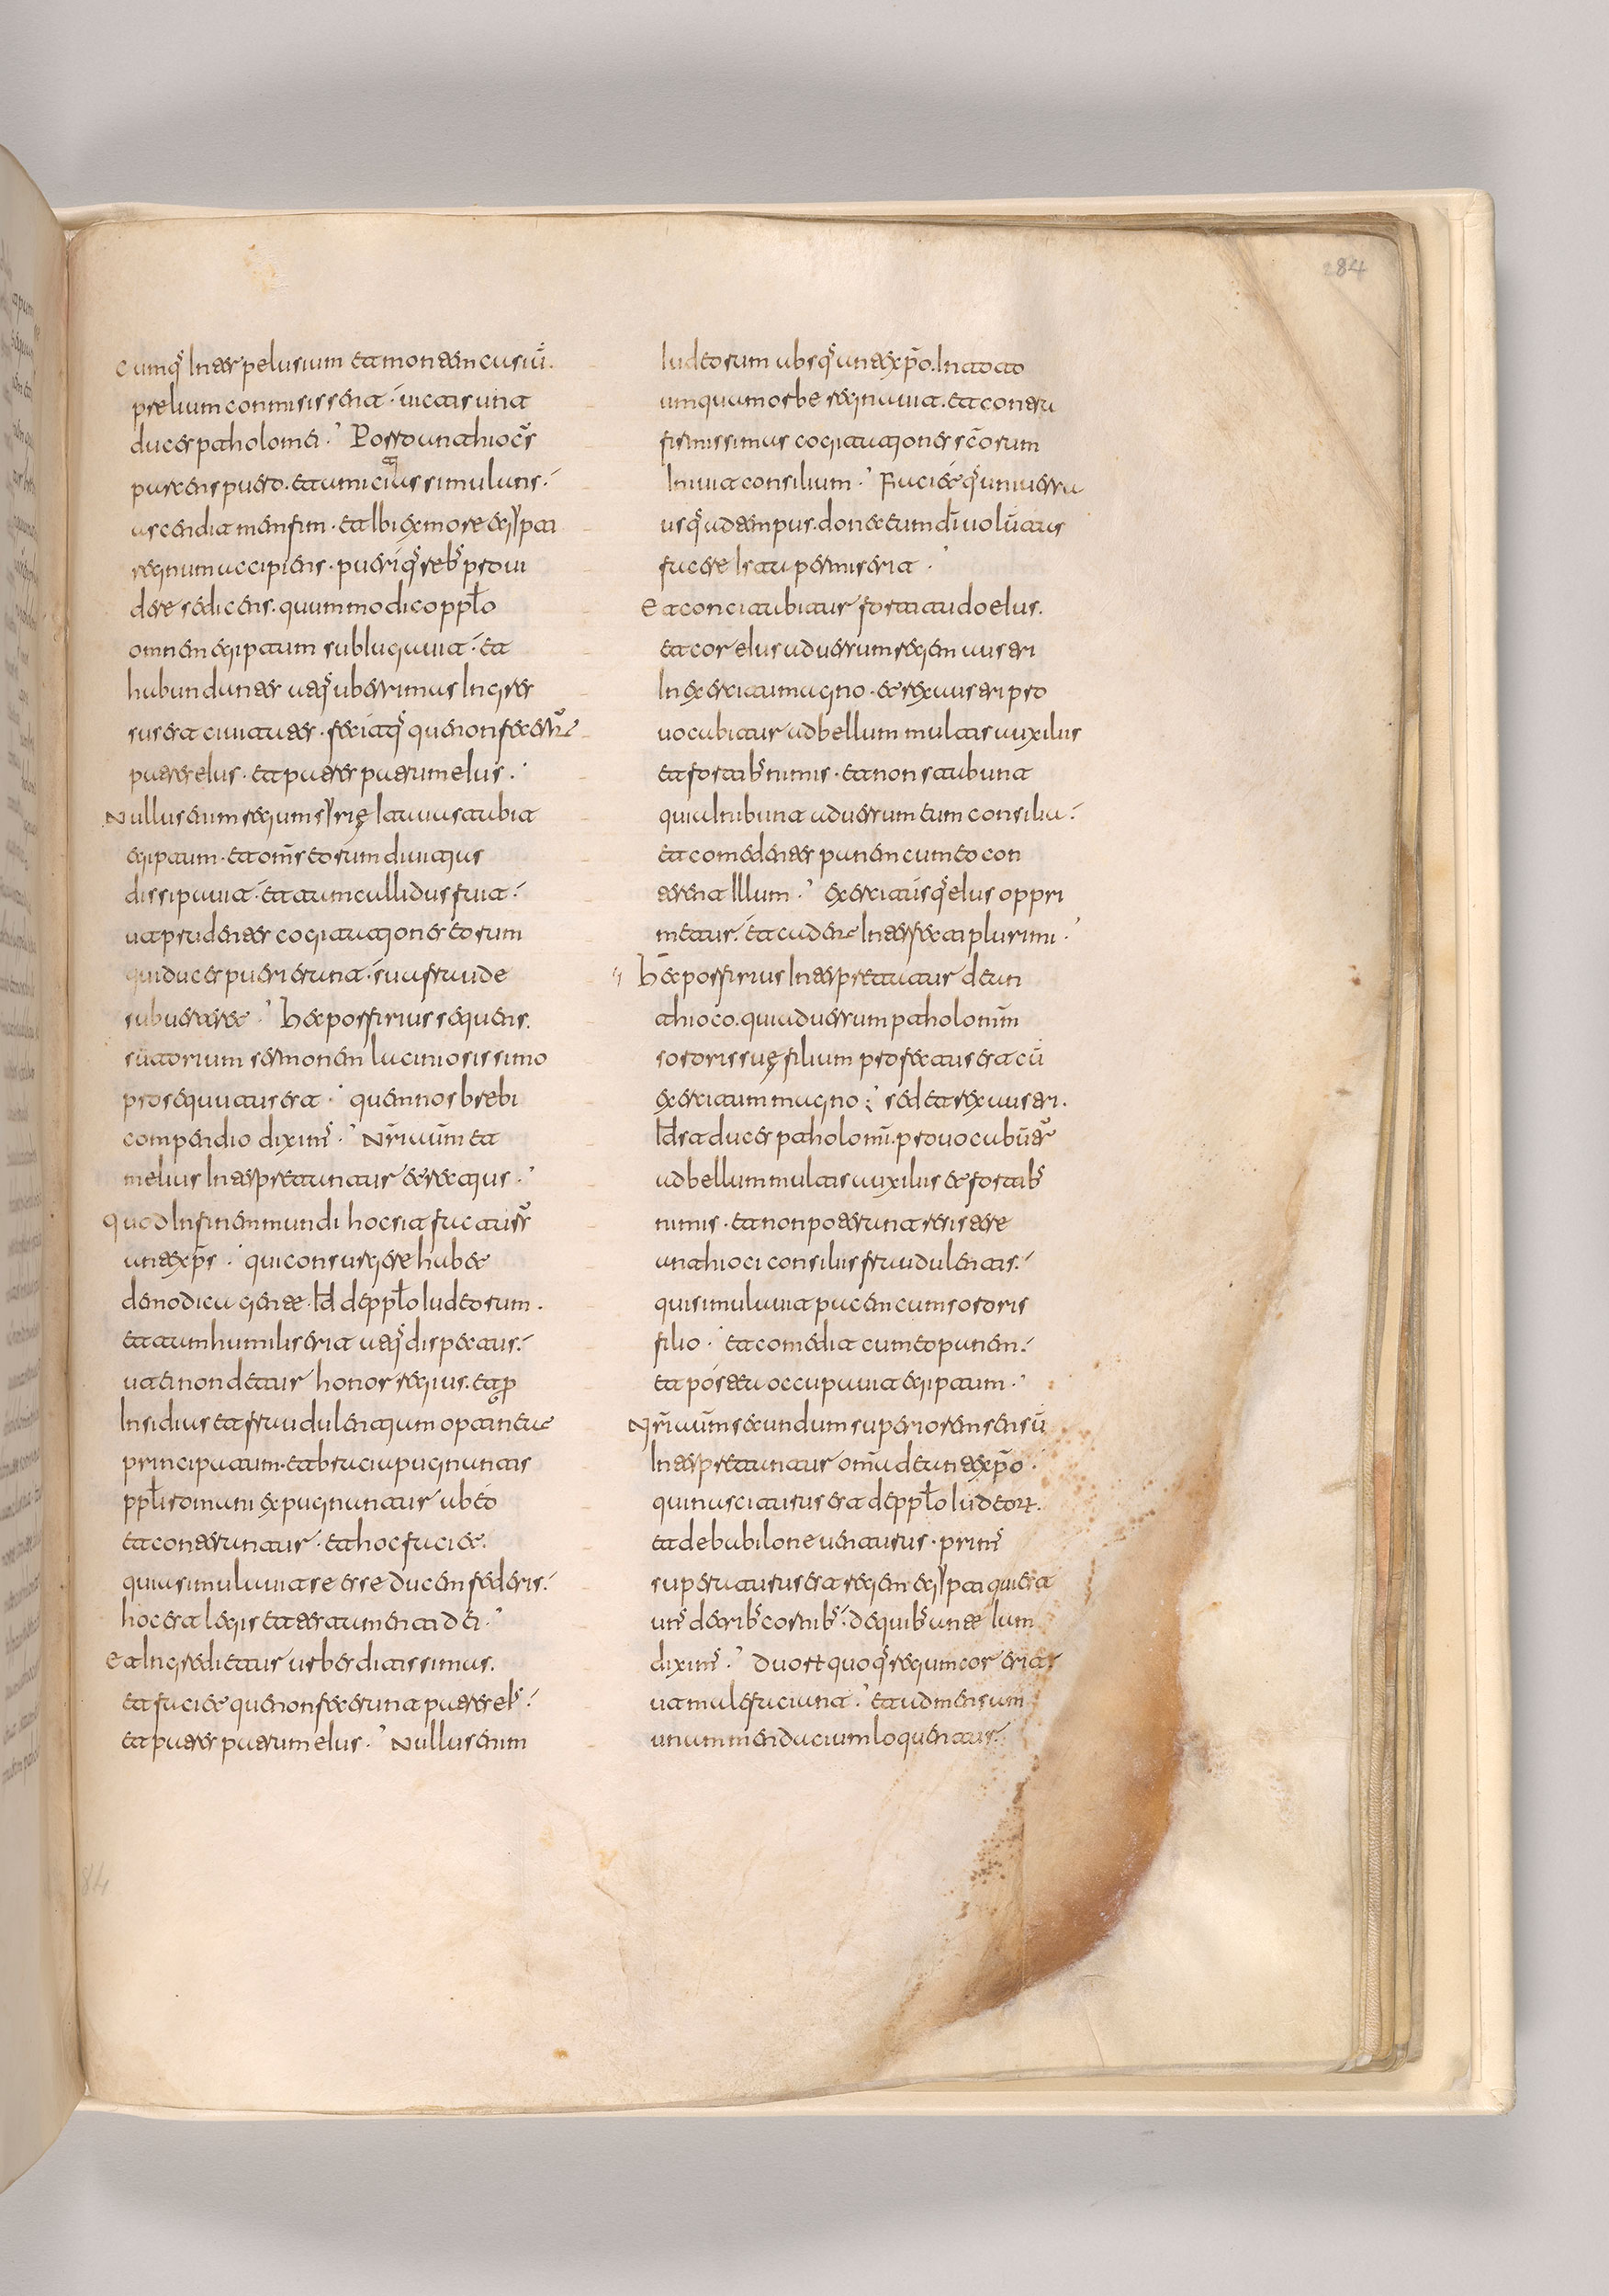 Cumq; Inter pelusium et montem casiū.
prelium conmisissent. uicti sunt
duces ptholomei. Porro antiocus
parcens puero. et amicitias simulans.
ascendit memfim. et Ibi ex more egypti
regnum accipiens. pueriq; reb; proui
dere se dicens. quum modico pplo
omnem egiptum subIugauit. et
habundantes atq; uberrimas Ingres
sus est ciuitates. fecitq; que non fecer̄
patres eIus. et patres patrum eIus.
Nullus enim regum syrię Ita uastabit
egiptum. et om̄s eorum diuitias
dissipauit. et tam callidus fuit.
ut prudentes cogitationes eorum
qui duces pueri erant. sua fraude
subuerteret. Hec porfirius sequens.
sūctorium sermonem laciniosissimo
prosequutus est. quem nos brebi
compendio dixim; Nri autm̄ et
melius Interpretantur et rectius.
Quod In finem mundi hoc sit factur;
antexp̄s. qui consurgere habet
de modica gente. Id de pplo Iudeorum.
et tam humilis erit atq; dispectus.
ut ei non detur honor regius. et p
Insidias et fraudulentiam optineat
principatum. et bracia pugnantis
ppli romani expugnantur ab eo
et conterantur. et hoc faciet.
quia simulauit se esse ducem federis.
hoc est legis et testamenti dei.
Et Ingredietur urbes ditissimas.
et faciet que non fecerunt patres eI;
et patres patrum eIus. Nullus enim
Iudeorum absq; antexp̄o. In toto
umquam orbe regnauit. et contra
firmissimas cogitationes sc̄orum
Iniuit consilium. Faciet q; uniuersa
usq; ad tempus. donec eum dī uolūtas
facere Ista permiserit.
Et concitabitur fortitudo eIus.
et cor eIus aduersum regem austri
In exercitu magno. et rex austri pro
uocabitur ad bellum multis auxiliis
et fortib; nimis. et non stabunt
quia Inibunt aduersum eum consilia.
et comedentes panem cum eo con
terent Illum. exercitusq; eIus oppri
metur. et cadent Interfecti plurimi.
Hec porfirius Interpretatur de an
tioco. qui aduersum ptholomm̄
sororis suę filium profecturus est cū
exercitum magno; sed et rex austri.
Id est duces ptholomī. prouocabūtr
ad bellum multis auxiliis et fortib;
nimis. et non poterunt resistere
antioci consiliis fraudulentis.
qui simulauit pacem cum sororis
filio. et comedit cum eo panem.
et postea occupauit egiptum.
Nri autm̄ secundum superiorem sensū
Interpretantur omia de antexp̄o.
qui nasciturus est de pplo Iudeorꝝ.
et de babilone uenturus. prim;
superaturus est regem egypti qui est
un; de trib; cornib; de quib; ante Iam
dixim; Duorꝝ quoq; regum cor erit
ut malefaciant. et ad mensam
unam mendacium loquentur.
284